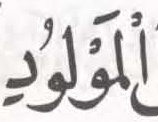 الْمَوْلُودِ